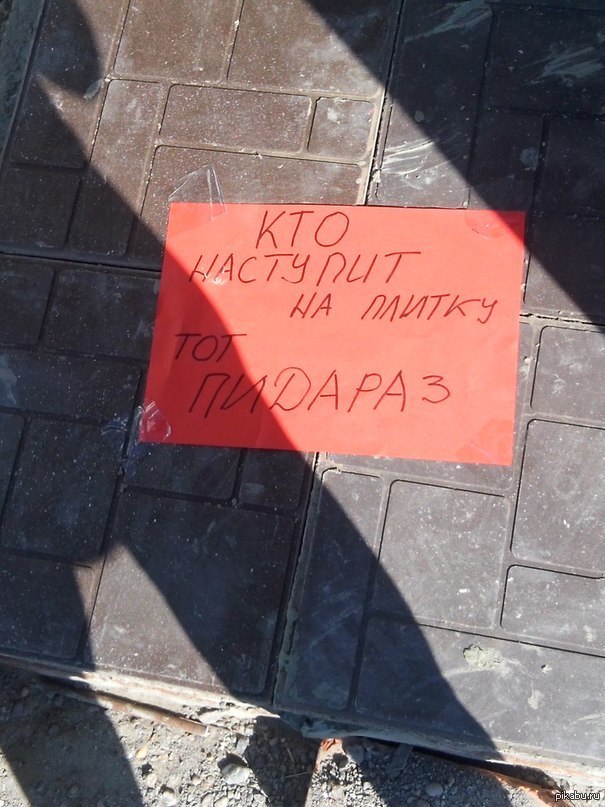 КТО
НАСТУПИТ
НА ПЛИТКУ
ТОТ
ПИДАРАЗ
pikabu.ru